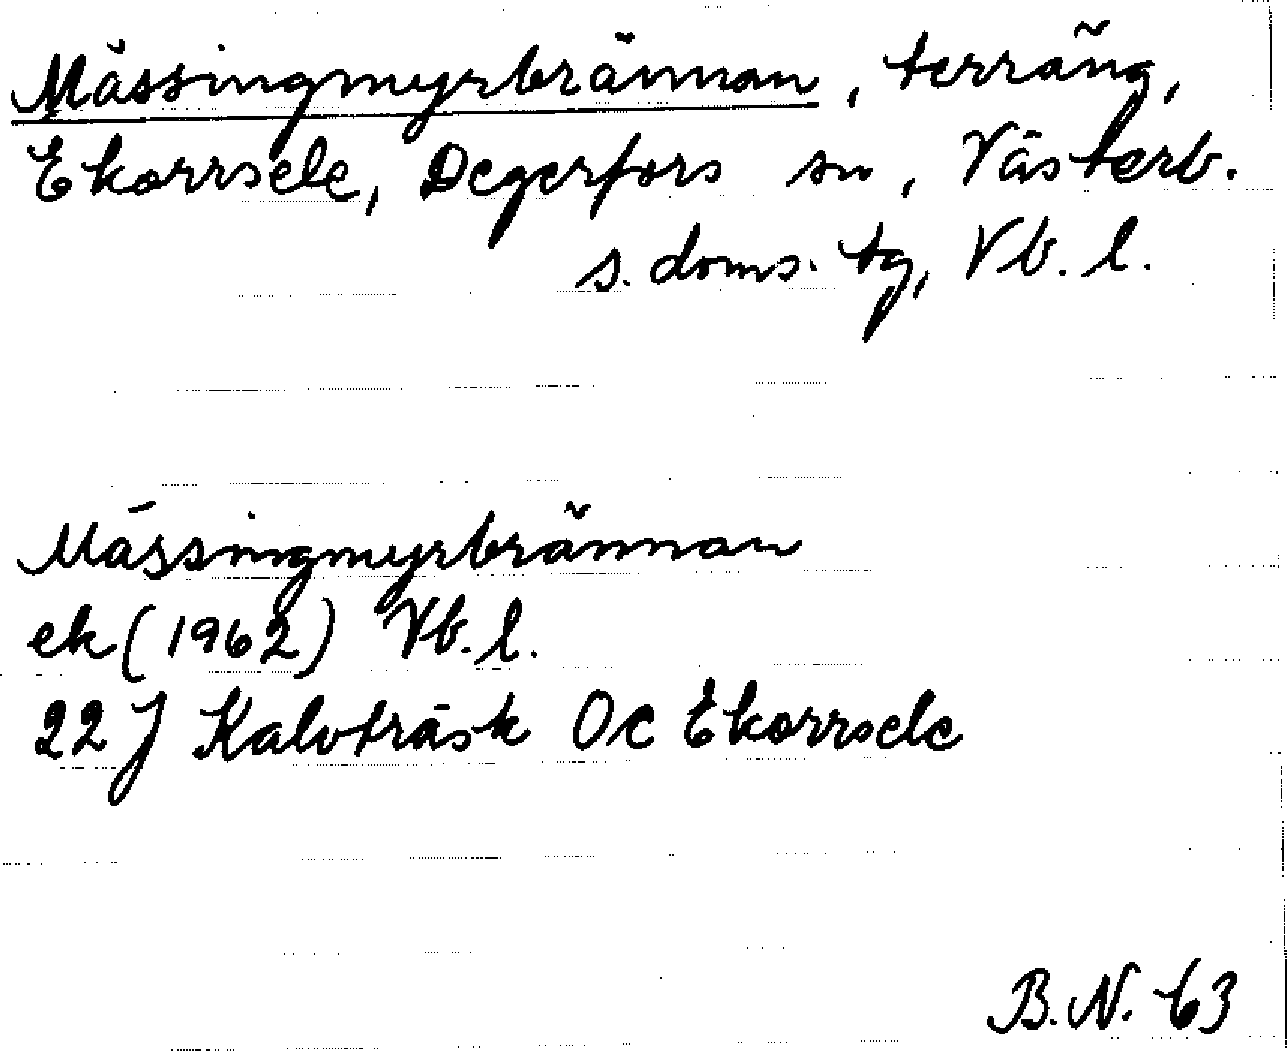 Mässingmyrbrännan, terräng,
Ekorrsele, Degerfors sn, Västerb.
s. doms. tg, Vb. l.
Mässingmyrbrännan
ek (1962) Vb. l.
22 J Kalvträsk 0c Ekorrsele
B.N. 63